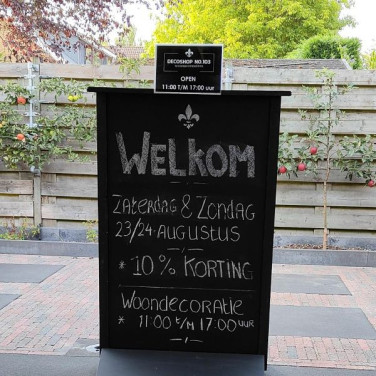 DECOSHOP NO.103
OPEN
11:00 T/M 17:00 UUR
WELKOM
ZATERDAG & ZONDAG
23/24 AUGUSTUS
* 10% KORTING
WOONDECORATIE
* 11:00 t/m 17:00 UUR